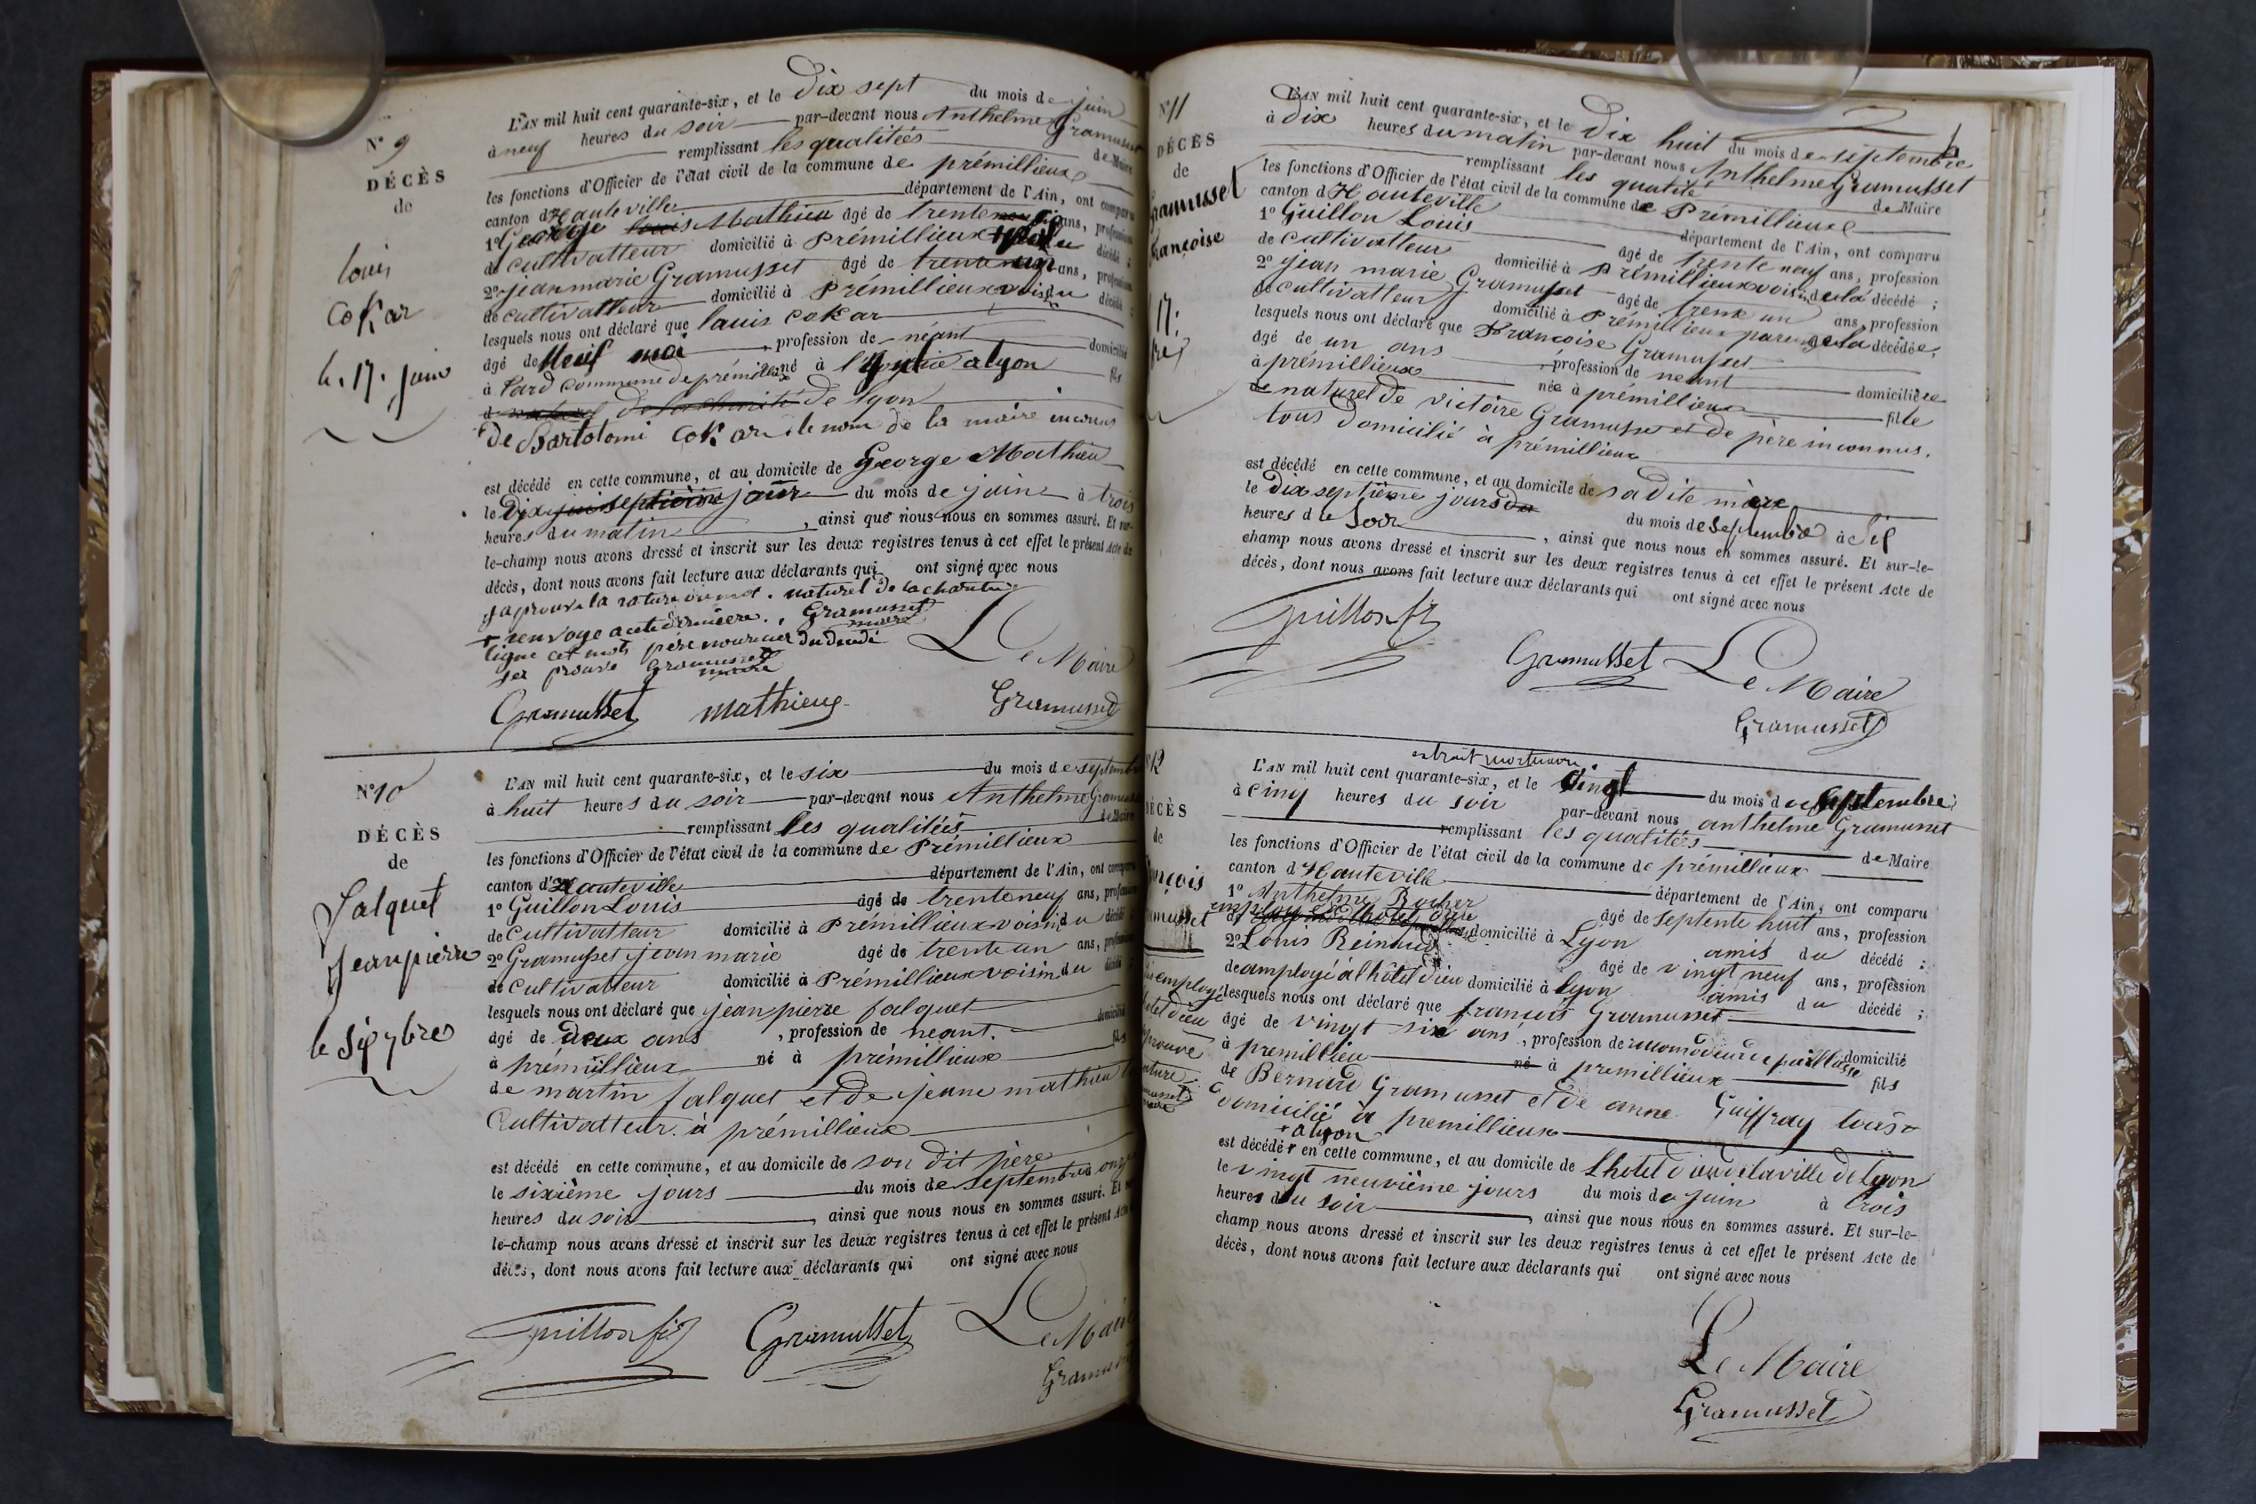 N° 9
DÉCÈS
de
louis
coKar
le 17. juin
L'AN mil huit cent quarante-six, et le Dix sept du mois de juin
à neuf heures du soir par-devant nous Anthelme Gramusset
remplissant les qualitées de Maire
les fonctions d'Officier de l'état civil de la commune de prémillieux
canton d'Hauteville département de l'Ain, ont comparu
1° George Mathieu âgé de trente ans, profession
de cultivatteur domicilié à Prémillieux du décédé ;
2° jean marie Gramusset âgé de trente un ans, profession
de cultivatteur domicilié à Prémillieux voisin du décédé ;
lesquels nous ont déclaré que louis coKar
âgé de Neuf moi , profession de néant domicilié
à Lard commune de prémillieux né à à lyon fils
de lyon
De Bartolomi coKar le nom de la maire inconus
est décédé en cette commune, et au domicile de George Mathieu
le Dix septième jour du mois de juin à trois
heures du matin , ainsi que nous nous en sommes assuré. Et sur-
le-champ nous avons dressé et inscrit sur les deux registres tenus à cet effet le présent Acte de
décès, dont nous avons fait lecture aux déclarants qui ont signé avec nous
japrouve la rature naturel de la charité
+ renvoye Gramusset maire
ligne cet mots père nouricier du décédé
Gramusset maire
Le Maire
Gramusset mathieu Gramusset
N° 10
DÉCÈS
de
falquet
jean pierre
le 6 7bres
L'AN mil huit cent quarante-six, et le six du mois de septembre
à huit heures du soir par-devant nous Anthelme Gramusset
remplissant les qualitées de Maire
les fonctions d'Officier de l'état civil de la commune de Prémillieux
canton d'Hauteville département de l'Ain, ont comparu
1° Guillon Louis âgé de trente neuf ans, profession
de Cultivatteur domicilié à Prémillieux voisin du décédé ;
2° Gramusset jean marie âgé de trente un ans, profession
de Cultivatteur domicilié à Prémillieux voisin du décédé ;
lesquels nous ont déclaré que jean pierre falquet
âgé de deux ans , profession de neant. domicilié
à prémillieux né à prémillieux fils
de martin falquet et de jeane mathieu
Cultivatteur à prémillieux
est décédé en cette commune, et au domicile de son dit père
le sixième jours du mois de septembre à onze
heures du soir , ainsi que nous nous en sommes assuré. Et sur-
le-champ nous avons dressé et inscrit sur les deux registres tenus à cet effet le présent Acte
décès, dont nous avons fait lecture aux déclarants qui ont signé avec nous
Guillon Gramusset Le Maire
Gramusset
2
N° 11
DÉCÈS
de
Gramusset
françoise
17:
L'AN mil huit cent quarante-six, et le Dix huit du mois de septembre
à Dix heures du matin par-devant nous Anthelme Gramusset
remplissant les qualité de Maire
les fonctions d'Officier de l'état civil de la commune de Prémillieux
canton d'Hauteville département de l'Ain, ont comparu
1° Guillon Louis âgé de trente neuf ans, profession
de cultivatteur domicilié à Prémillieux voisin de la décédé ;
2° jean marie Gramusset âgé de trente un ans, profession
de cultivatteur domicilié à Prémillieux parent de la décédée,
lesquels nous ont déclaré que françoise Gramusset
âgé de un ans , profession de neant domiciliée
à prémillieux née à prémillieux fille
naturel de victoire Gramusset et de père inconnus.
tous domicilié à prémillieux
est décédé en cette commune, et au domicile de sa dite mère
le Dix septième jours du mois de septembre à
heures de soir , ainsi que nous nous en sommes assuré. Et sur-le-
champ nous avons dressé et inscrit sur les deux registres tenus à cet effet le présent Acte de
décès, dont nous avons fait lecture aux déclarants qui ont signé avec nous
Guillon
Gramusset Le Maire
Gramusset
12
DÉCÈS
de
françois
Gramusset
extrait mortuaire
L'AN mil huit cent quarante-six, et le vingt du mois de septembre
à cinq heures du soir par-devant nous anthelme Gramusset
remplissant les qualitées de Maire
les fonctions d'Officier de l'état civil de la commune de prémillieux
canton d'Hauteville département de l'Ain, ont comparu
1° Anthelme Rocher âgé de septente huit ans, profession
domicilié à Lyon amis du décédé ;
2° Louis Reinaud âgé de vingt neuf ans, profession
de amployé à l'hôtel dieu domicilié à lyon amis du décédé ;
lesquels nous ont déclaré que françois Gramusset
âgé de vingt six ans , profession de domicilié
à premillieu né à premillieux fils
de Bernard Gramusset et de anne Guiffray tous
domicilié à premillieux
+ a lyon
est décédé + en cette commune, et au domicile de Lhotel dieu de la ville de lyon
le vingt neuvième jours du mois de juin à trois
heures du soir , ainsi que nous nous en sommes assuré. Et sur-le-
champ nous avons dressé et inscrit sur les deux registres tenus à cet effet le présent Acte de
décès, dont nous avons fait lecture aux déclarants qui ont signé avec nous
Le Maire
Gramusset